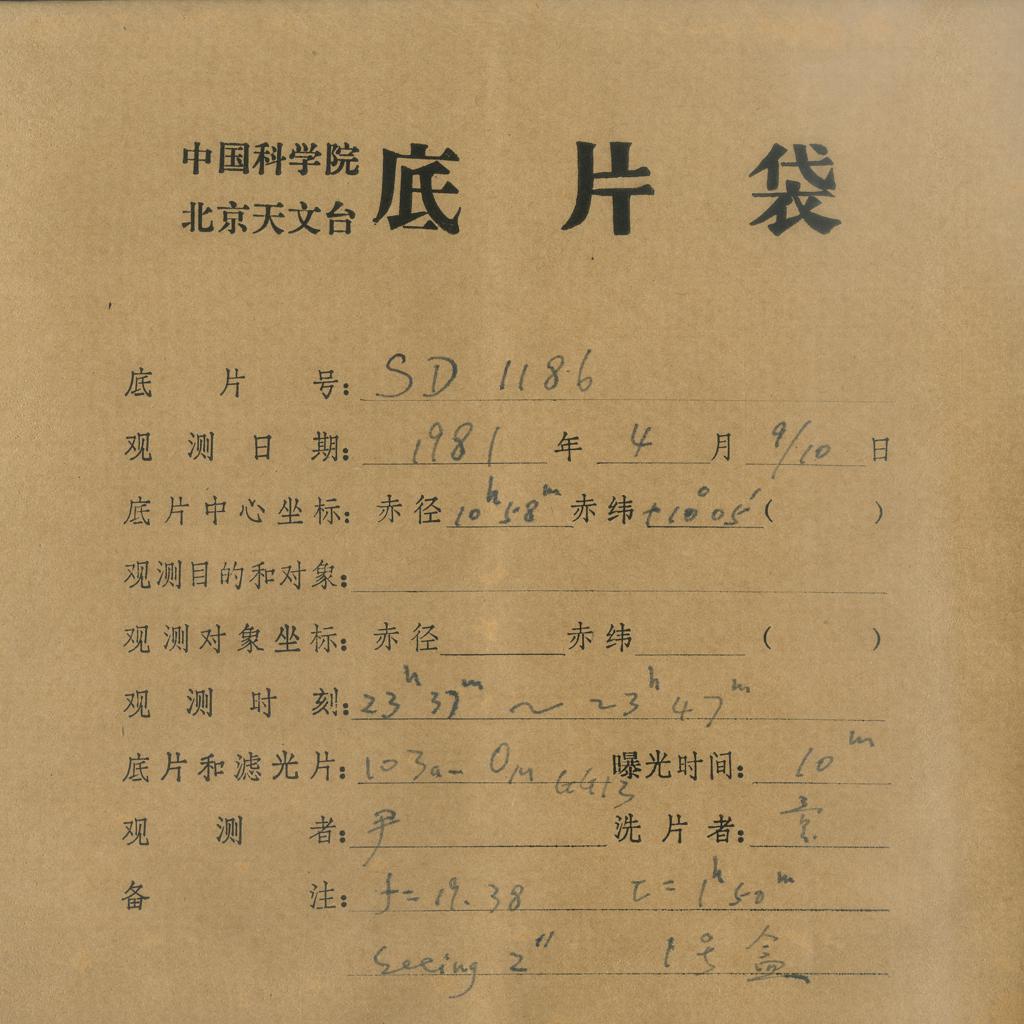 中国科学院
北京天文台
底片袋
底片号: SD 1186
观测日期: 1981 年 4 月 9/10 日
底片中心坐标: 赤径 10h58m 赤纬 +10°05′ ( )
观测目的和对象:
观测对象坐标: 赤径 赤纬 ( )
观测时刻: 23h37m ~ 23h47m
底片和滤光片: 103a-O GG13 曝光时间: 10m
观测者: 尹 洗片者:
备注: f=19.38 τ=1h50m
seeing 2″ 1号盒